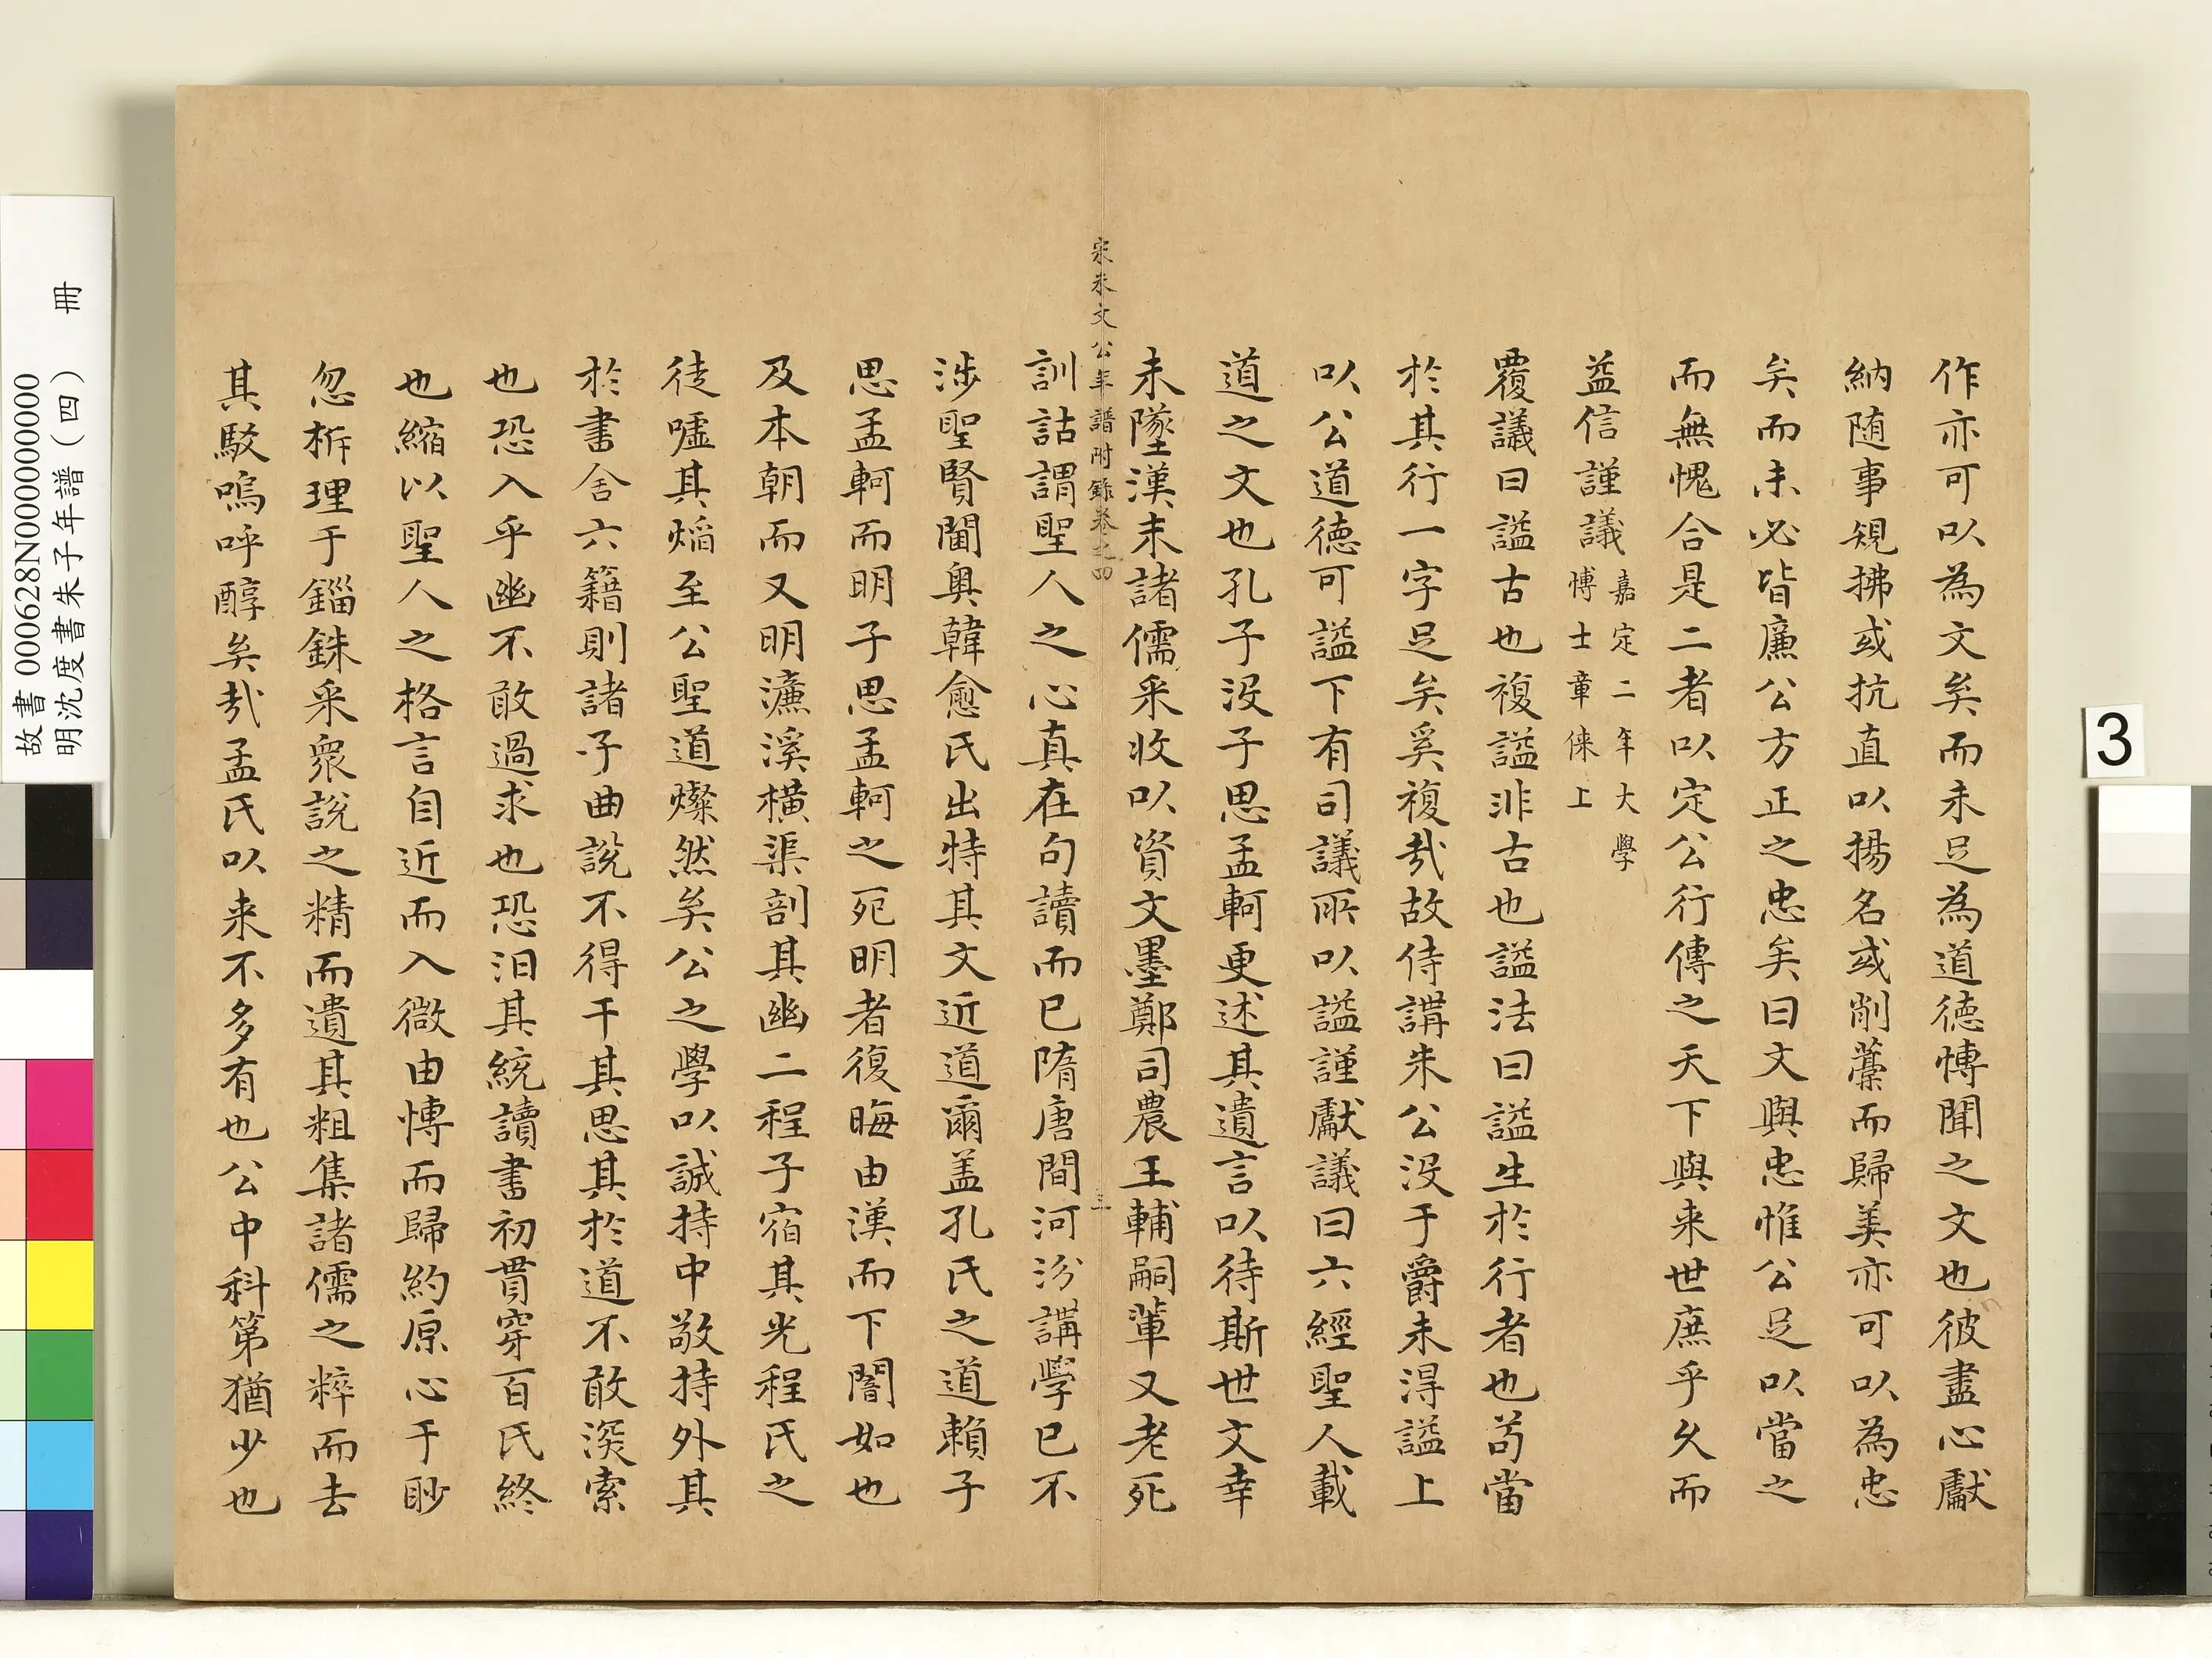 作亦可以為文矣而未足為道德博聞之文也彼盡心獻
納随事規拂或抗直以揚名或削藳而歸美亦可以為忠
矣而未必皆廉公方正之忠矣曰文與忠惟公足以當之
而無愧合是二者以定公行傳之天下與来世庶乎久而
益信謹議
嘉定二年大學
博士章倈上
覆議曰謚古也複謚非古也謚法曰謚生於行者也苟當
於其行一字足矣奚複㢤故侍講朱公没于爵未得謚上
以公道德可謚下有司議所以謚謹獻議曰六經聖人載
道之文也孔子没子思孟軻更述其遺言以待斯世文幸
未墜漢末諸儒采收以資文墨鄭司農王輔嗣輩又老死
宋朱文公年譜附錄卷之四
三
訓詁謂聖人之心真在句讀而已隋唐間河汾講學已不
涉聖賢閫奥韓愈氏出特其文近道爾盖孔氏之道賴子
思孟軻而明子思孟軻之死明者復晦由漢而下闇如也
及本朝而又明濂溪橫渠剖其幽二程子宿其光程氏之
徒噓其焰至公聖道燦然矣公之學以誠持中敬持外其
於書舍六籍則諸子曲說不得干其思其於道不敢深索
也恐入乎幽不敢過求也恐汨其統讀書初貫穿百氏終
也縮以聖人之格言自近而入微由博而歸約原心于眇
忽析理于錙銖采衆說之精而遺其粗集諸儒之粹而去
其駁嗚呼醇矣㢤孟氏以来不多有也公中科第猶少也
故書 000628N000000000
明沈度書朱子年譜(四)　冊
3